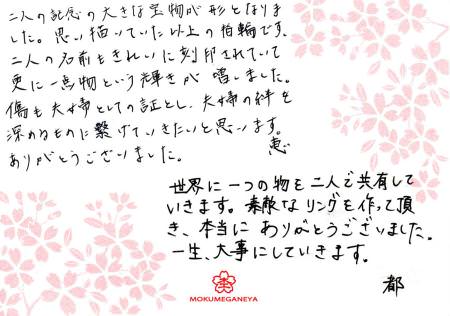 二人の記念の大きな宝物が形となりま
した。思い描いていた以上の指輪です。
二人の名前もきれいに刻印されていて
更に一点物という輝きが増しました。
傷も夫婦としての証とし、夫婦の絆を
深めるものに繋げていきたいと思います。
ありがとうございました。 恵
世界に一つの物を二人で共有して
いきます。素敵なリングを作って頂
き、本当に ありがとうございました。
一生、大事にしていきます。
都
MOKUMEGANEYA